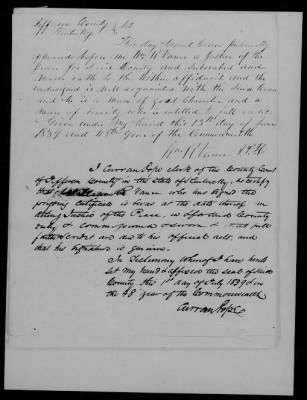 Jefferson County } Sct
Kentucky }
This day Samuel Conn personally
appeared before me Wm R Vance a Justice of the
Peace for said County and Subscribed and
made oath to the within affidavit and the
undersigned is well acquainted with the said Conn
and he is a man of good Character and a
man of veracity who is entitled to full credit.
Given under my hand this 13th day of June
1839 and 48th Year of the Commonwealth
Wm R Vance J P
I Curran Pope clerk of the County Court
of Jefferson County in the State of Kentucky, certify
that William R Vance who has signed the
foregoing certificate is & was at the date thereof an
acting Justice of the Peace, in & for said County
duly commissioned & sworn & that full
faith & credit are due to his official acts, and
that his signature is genuine.
In Testimony Whereof I have hereto
set my hand & affixed the seal of said
County this 1st day of July 1839 & in
the 48 year of the Commonwealth
Curran Pope